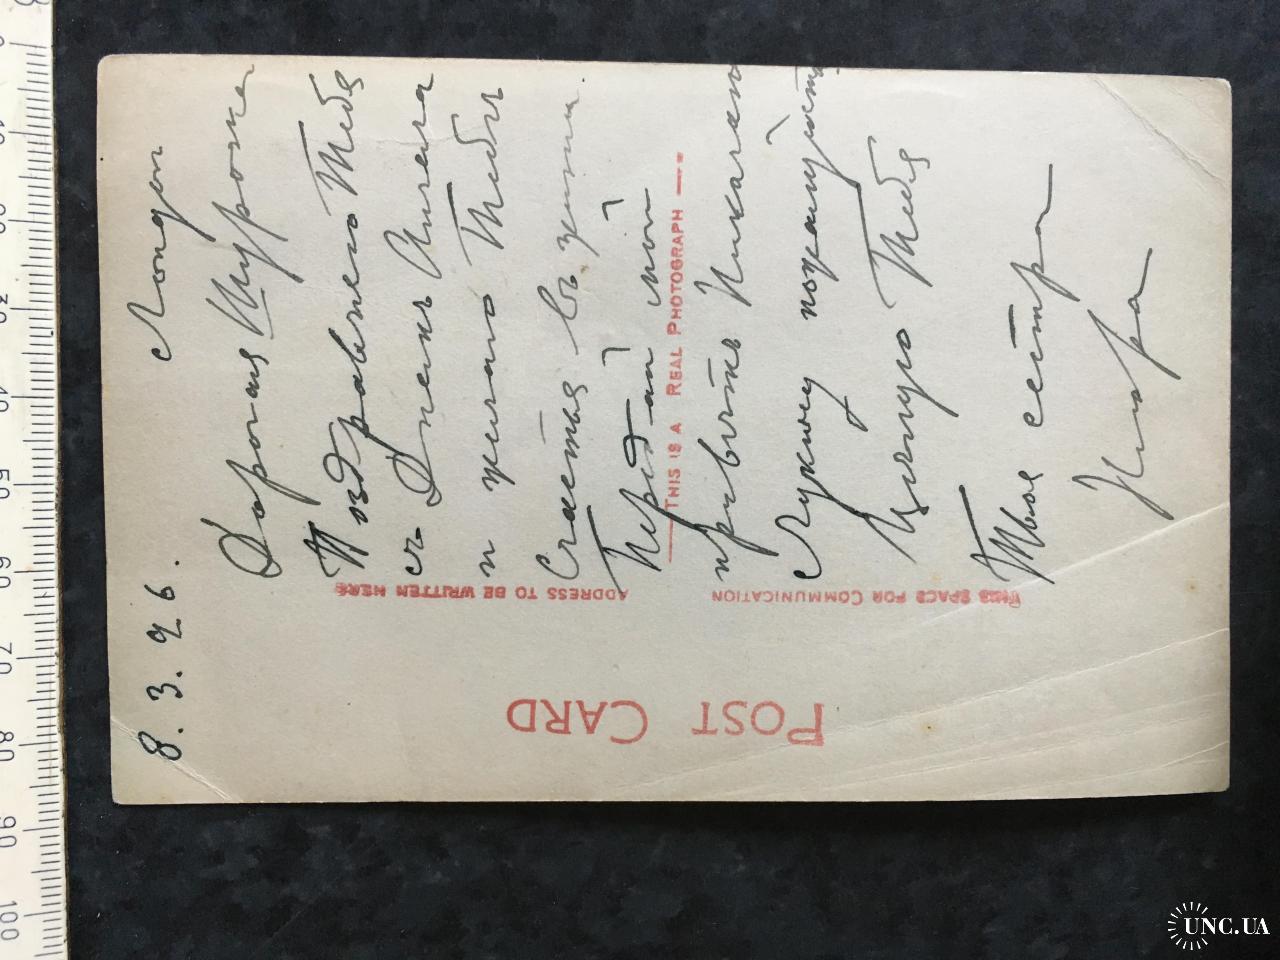 8.3.26.
Лондон
Дорогая Шурочка
Поздравляю Тебя
съ Днемъ Ангела
и желаю Тебѣ
Счастья въ жизни.
Передай мой
привѣтъ
пожалуйста
Цѣлую Тебя
Твоя сестра
POST CARD
THIS SPACE FOR COMMUNICATION
ADDRESS TO BE WRITTEN HERE
THIS IS A REAL PHOTOGRAPH
0
10
20
30
40
50
60
70
80
90
100
UNC.UA